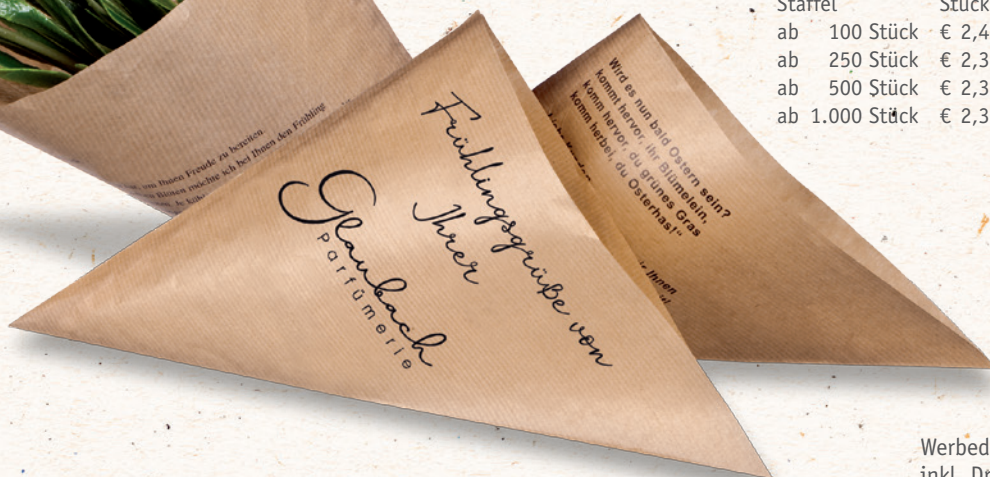 Staffel Stück
ab 100 Stück € 2,4
ab 250 Stück € 2,3
ab 500 Stück € 2,3
ab 1.000 Stück € 2,3
Ihnen Freude zu bereiten.
möchte ich bei Ihnen den Frühling
Frühlingsgrüße von
Ihrer
Glaubach
Parfümerie
Wird es nun bald Ostern sein?
kommt hervor, ihr Blümelein,
komm hervor, du grünes Gras
komm herbei, du Osterhas!"
Ihnen
Werbed
inkl. Dr